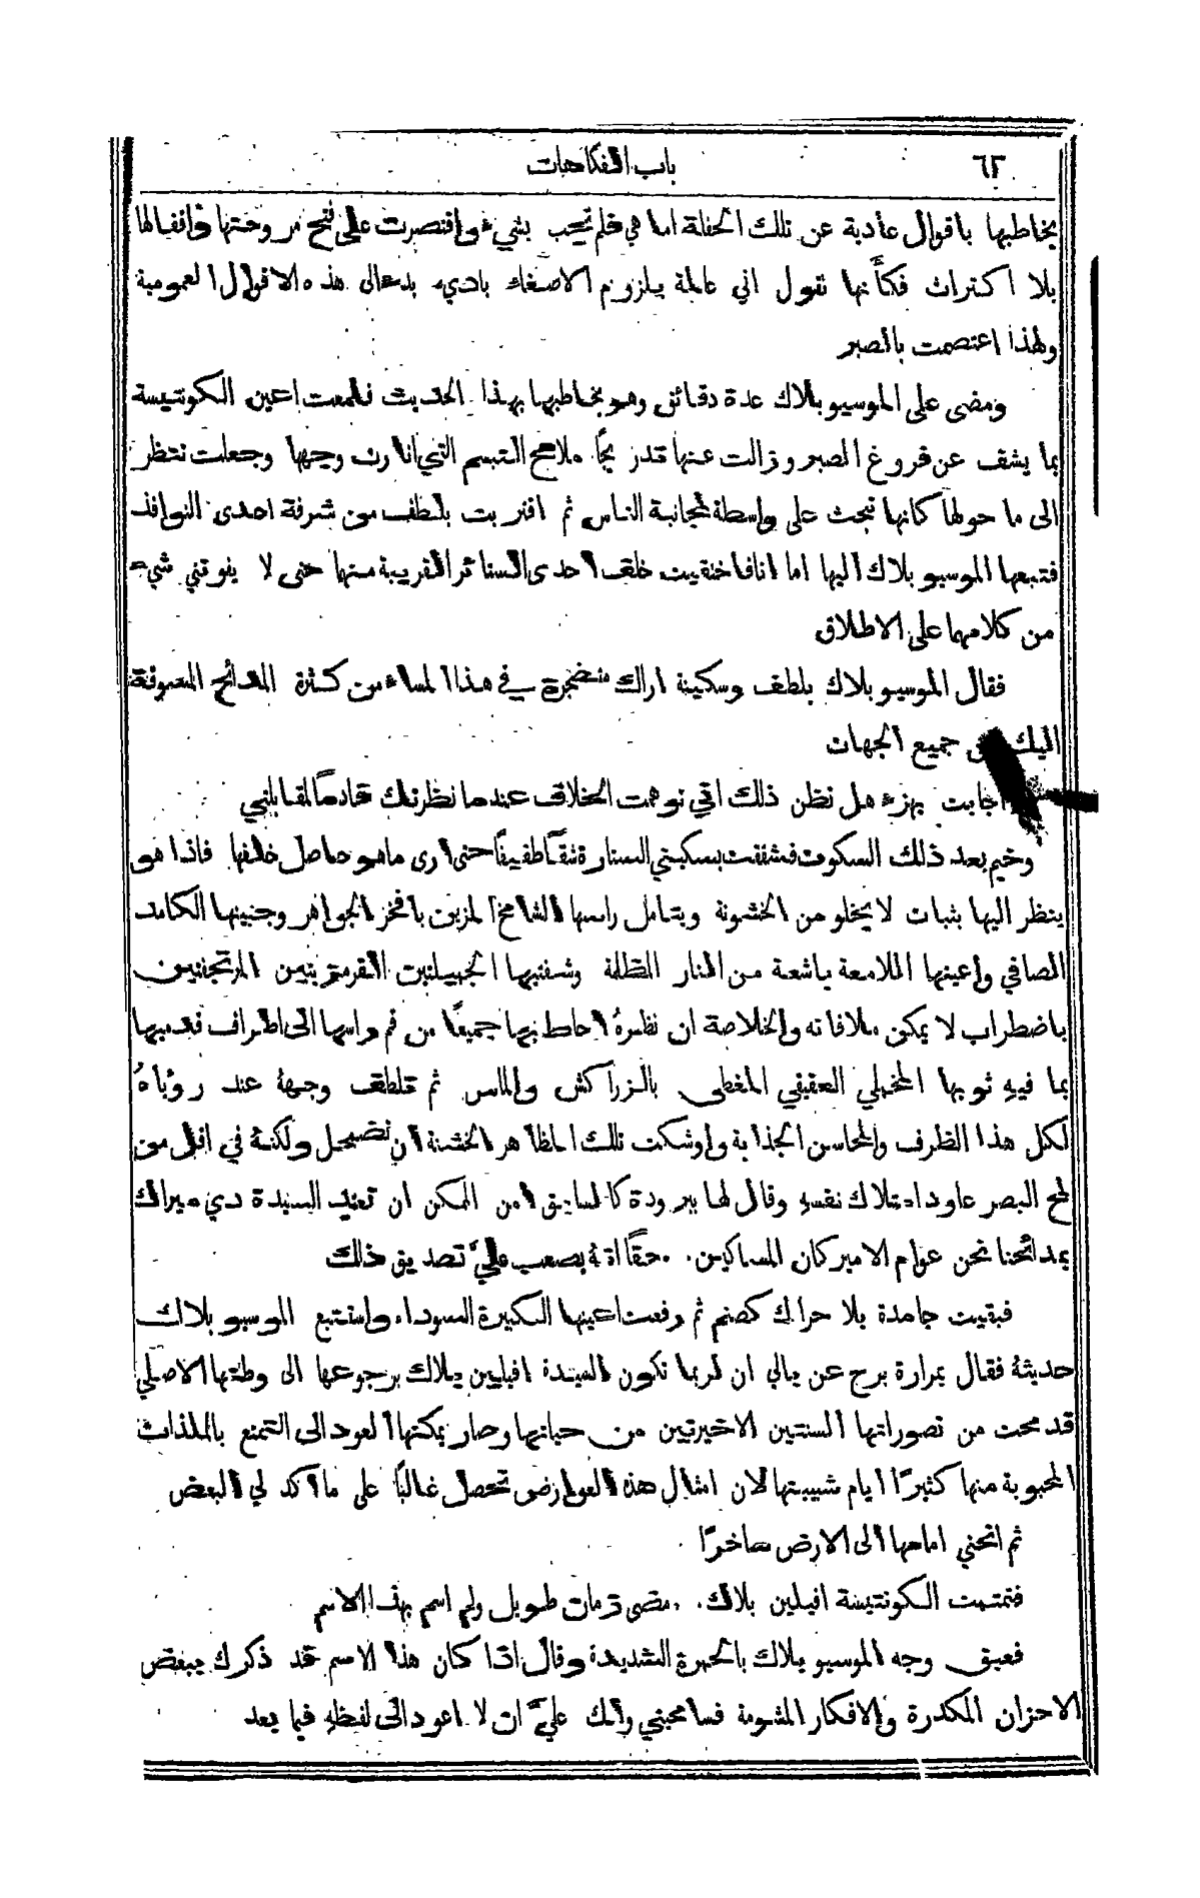 ٦٢ باب الفكاهات
يخاطبها باقوال عادية عن تلك الحفلة اما هي فلم تجب بشيء واقتصرت على فتح مروحتها واقفالها
بلا اكتراث فكأنها نقول اني عالمة بلزوم الاصغاء باديء بدء الى هذه الاقوال العمومية
ولهذا اعتصمت بالصبر
ومضى على الموسيو بلاك عدة دقائق وهو يخاطبها بهذا الحديث فلمعت اعين الكونتيسة
بما يشف عن فروغ الصبر وزالت عنها تدريجًا ملامح التبسم التي انارت وجهها وجعلت تنظر
الى ما حولها كانها تبحث على واسطة لمجانبة الناس ثم اقتربت بلطف من شرفة احدى النوافذ
فتبعها الموسيو بلاك اليها اما انا فاختفيت خلف احدى الستائر القريبة منها حتى لا يفوتني شيء
من كلامهما على الاطلاق
فقال الموسيو بلاك بلطف وسكينة اراك متضجرة في هذا المساء من كثرة المدائح المسوقة
اليك جميع الجهات
اجابت بهزء هل تظن ذلك اني توهمت الخلاف عندما نظرتك قادمًا لمقابلتي
وخيم بعد ذلك السكوت فشققت بسكيني الستارة شقًا طفيفًا حتى ارى ما هو حاصل خلفها فاذا هو
ينظر اليها بثبات لا يخلو من الخشونة ويتامل راسها الشامخ المزين بافخر الجواهر وجبينها الكامد
الصافي واعينها اللامعة باشعة من النار المظلمة وشفتيها الجميلتين القرمزيتين المرتجفتين
باضطراب لا يمكن ملافاته والخلاصة ان نظرهُ احاط بها جميعًا من قم راسها الى اطراف قدميها
بما فيه ثوبها المخملي العقيقي المغطى بالزراكش والماس ثم تلطف وجهه عند رؤياهُ
لكل هذا الظرف والمحاسن الجذابة واوشكت تلك المظاهر الخشنة ان تضمحل ولكنه في اقل من
لمح البصر عاود امتلاك نفسه وقال لها ببرودة كالسابق امن الممكن ان تعتد السيدة دي ميراك
بمدائحنا نحن عوام الاميركان المساكين. . حقًا انه يصعب عليَّ تصديق ذلك
فبقيت جامدة بلا حراك كصنم ثم رفعت اعينها الكبيرة السوداء واستتبع الموسيو بلاك
حديثه فقال بمرارة برح عن بالي ان لربما تكون السيدة افيلين بلاك برجوعها الى وطنها الاصلي
قد محت من تصوراتها السنتين الاخيرتين من حياتها وصار يمكنها العود الى التمتع بالملذات
المحبوبة منها كثيرًا ايام شبيبتها لان امثال هذه العوارض تحصل غالبًا على ما اكد لي البعض
ثم انحنى امامها الى الارض ساخرًا
فتمتمت الكونتيسة افيلين بلاك. . مضى زمان طويل ولم اسم بهذا الاسم
فعبق وجه الموسيو بلاك بالحمرة الشديدة وقال اذا كان هذا الاسم قد ذكرك ببعض
الاحزان المكدرة والافكار المشومة فسامحيني ولك عليَّ ان لا اعود الى لفظهِ فيما بعد